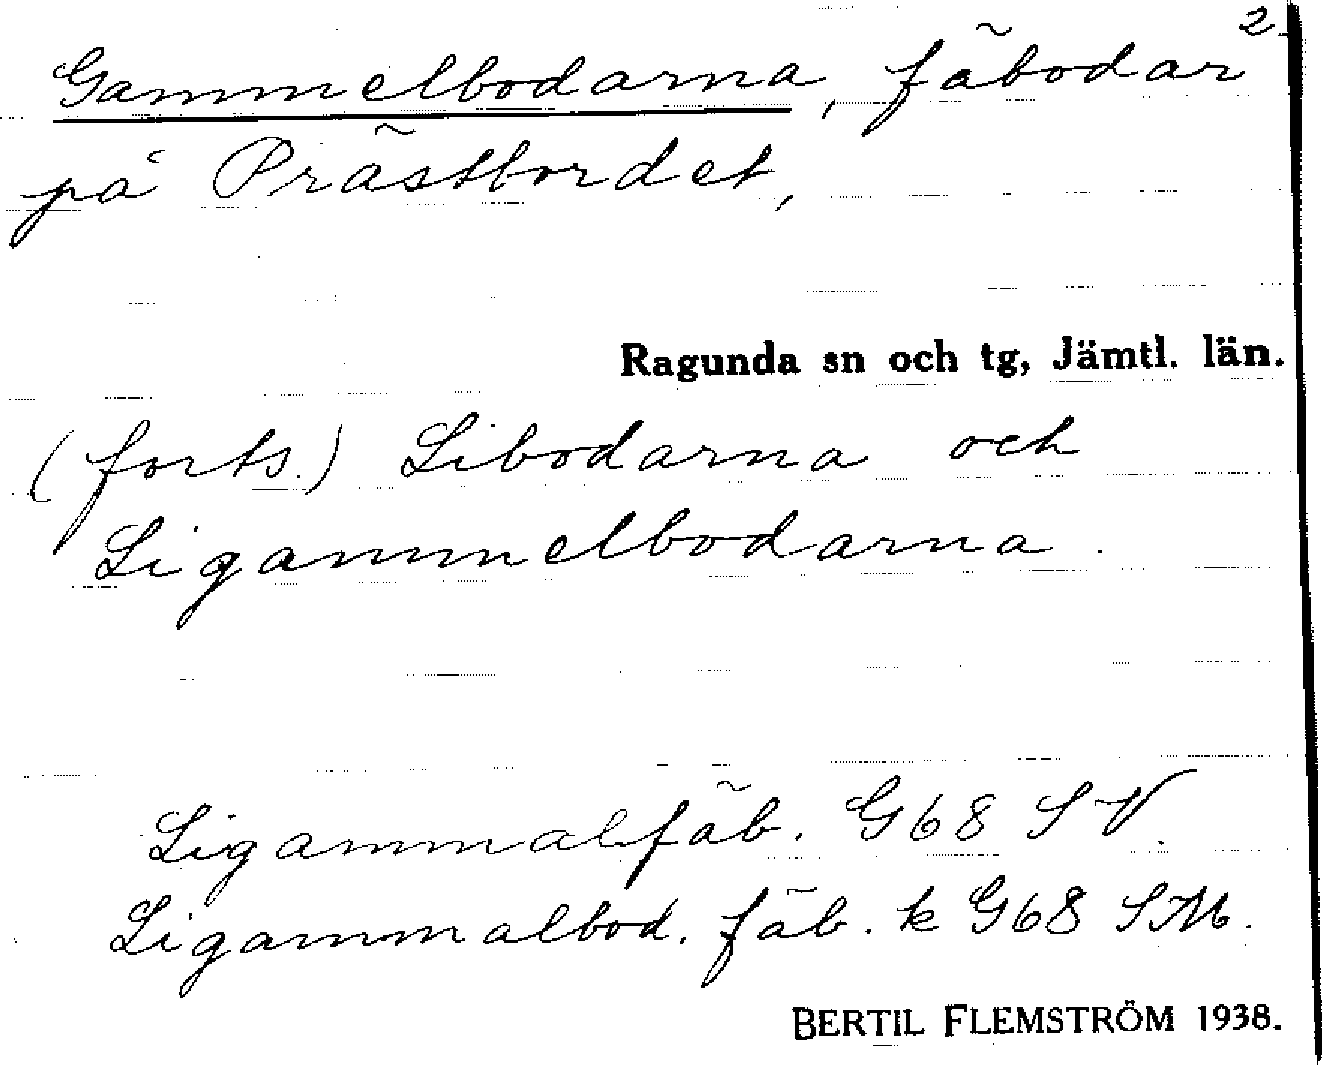 2
Gammelbodarna, fäbodar
på Prästbordet,
Ragunda sn och tg, Jämtl. län.
(forts.) Libodarna och
Ligammelbodarna.
Ligammalfäb. G68 SV.
Ligammalbod. fäb. k G68 SM.
BERTIL FLEMSTRÖM 1938.